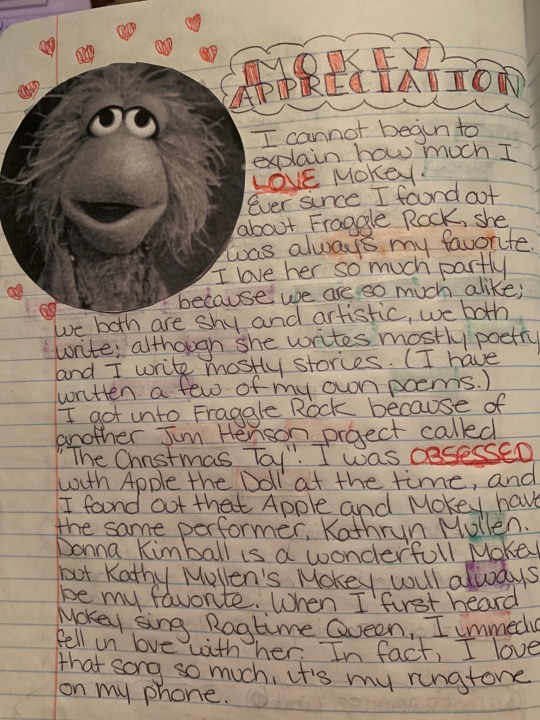 MOKEY
APPRECIATION
I cannot begin to
explain how much I
LOVE Mokey.
Ever since I found out
about Fraggle Rock, she
was always my favorite.
I love her so much partly
because we are so much alike;
we both are shy and artistic, we both
write; although she writes mostly poetry
and I write mostly stories. (I have
written a few of my own poems.)
I got into Fraggle Rock because of
another Jim Henson project called
"The Christmas Toy". I was OBSESSED
with Apple the Doll at the time, and
I found out that Apple and Mokey have
the same performer, Kathryn Mullen.
Donna Kimball is a wonderfull Mokey
but Kathy Mullen's Mokey will always
be my favorite. When I first heard
Mokey sing Ragtime Queen, I immedia
fell in love with her. In fact, I love
that song so much, it's my rungtone
on my phone.